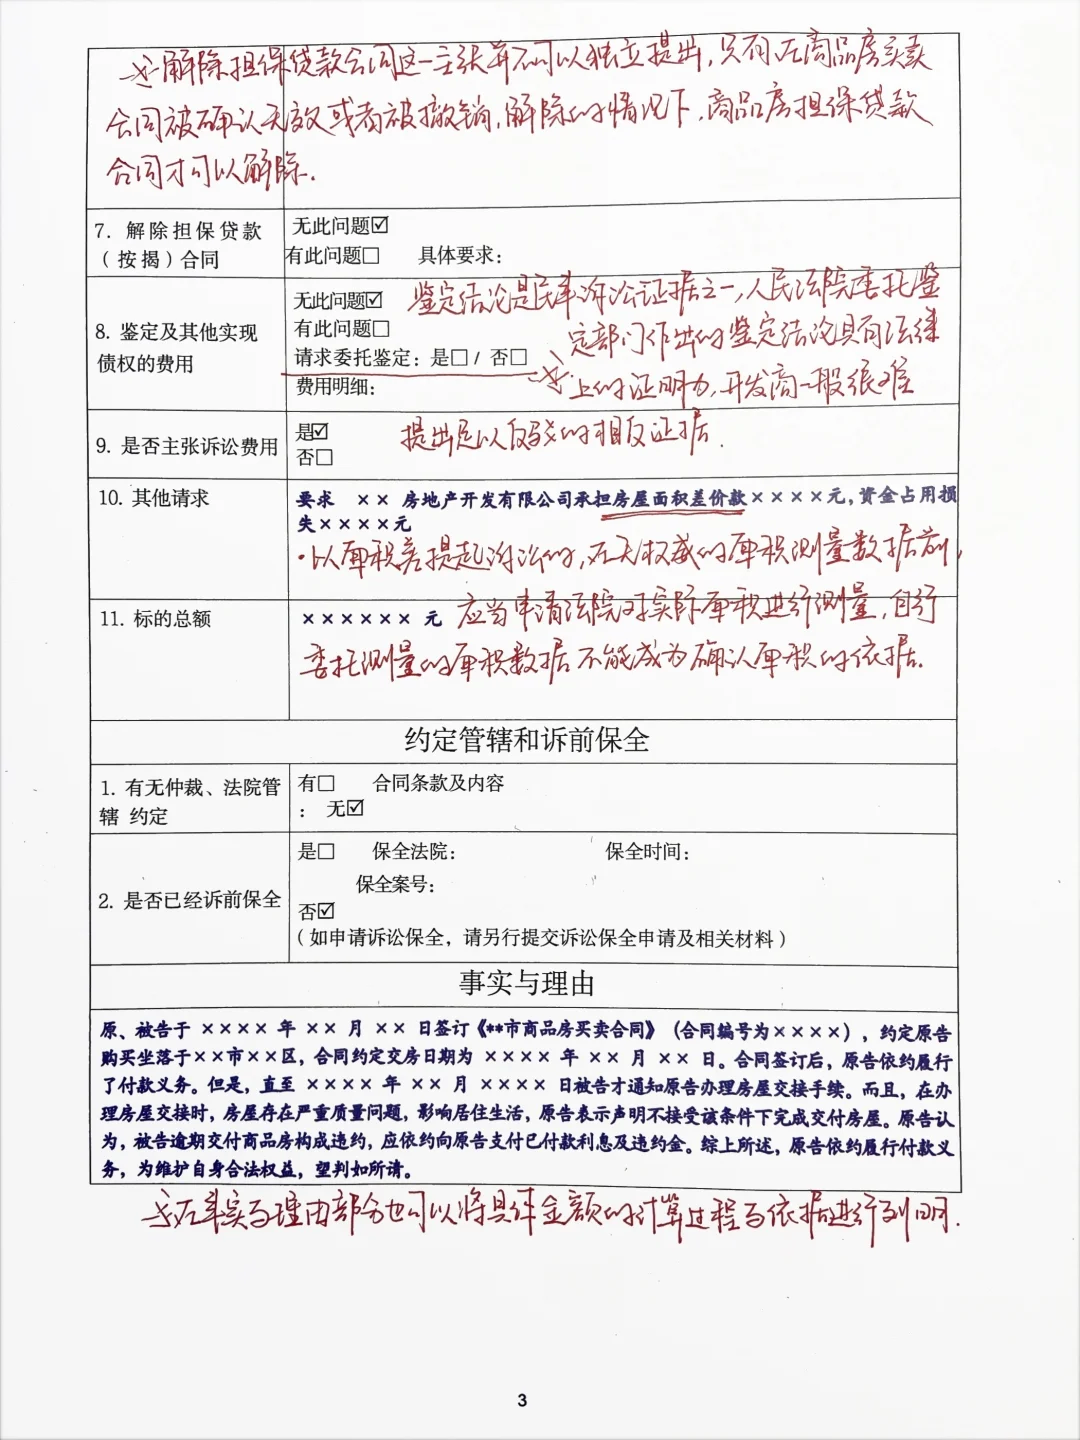 解除担保贷款合同这一主张并不可以独立提出,只有在商品房买卖
合同被确认无效或者被撤销,解除的情况下,商品房担保贷款
合同才可以解除.
7. 解除担保贷款
（按揭）合同
无此问题☑
有此问题□ 具体要求:
8. 鉴定及其他实现
债权的费用
无此问题☑
有此问题□
请求委托鉴定: 是□ / 否□
费用明细:
鉴定结论是民事诉讼证据之一,人民法院委托鉴
定部门作出的鉴定结论具有法律
上的证明力,开发商一般很难
提出足以反驳的相反证据.
9. 是否主张诉讼费用
是☑
否□
10. 其他请求
要求 ×× 房地产开发有限公司承担房屋面积差价款××××元, 资金占用损
失××××元
·以面积差提起诉讼的,在无权威的面积测量数据前,
应当申请法院对实际面积进行测量,自行
委托测量的面积数据不能成为确认面积的依据.
11. 标的总额
×××××× 元
约定管辖和诉前保全
1. 有无仲裁、法院管
辖 约定
有□ 合同条款及内容
: 无☑
2. 是否已经诉前保全
是□ 保全法院: 保全时间:
保全案号:
否☑
(如申请诉讼保全，请另行提交诉讼保全申请及相关材料)
事实与理由
原、被告于 ×××× 年 ×× 月 ×× 日签订《**市商品房买卖合同》（合同编号为××××），约定原告
购买坐落于××市××区，合同约定交房日期为 ×××× 年 ×× 月 ×× 日。合同签订后，原告依约履行
了付款义务。但是，直至 ×××× 年 ×× 月 ×××× 日被告才通知原告办理房屋交接手续。而且，在办
理房屋交接时，房屋存在严重质量问题，影响居住生活，原告表示声明不接受该条件下完成交付房屋。原告认
为，被告逾期交付商品房构成违约，应依约向原告支付已付款利息及违约金。综上所述，原告依约履行付款义
务，为维护自身合法权益，望判如所请。
在事实与理由部分也可以将具体金额的计算过程与依据进行列明.
3